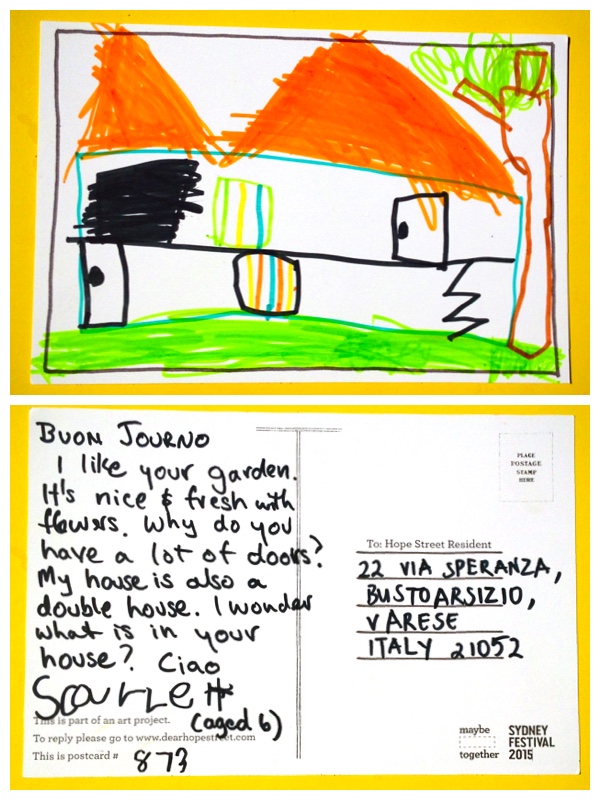 BUON JOURNO
I like your garden.
It's nice & fresh with
flowers. Why do you
have a lot of doors?
My house is also a
double house. I wonder
what is in your
house? Ciao
Scarlett
(aged 6)
This is part of an art project.
To reply please go to www.dearhopestreet.com
This is postcard # 873
PLACE
POSTAGE
STAMP
HERE
To: Hope Street Resident
22 VIA SPERANZA,
BUSTOARSIZIO,
VARESE
ITALY 21052
maybe
together
SYDNEY
FESTIVAL
2015